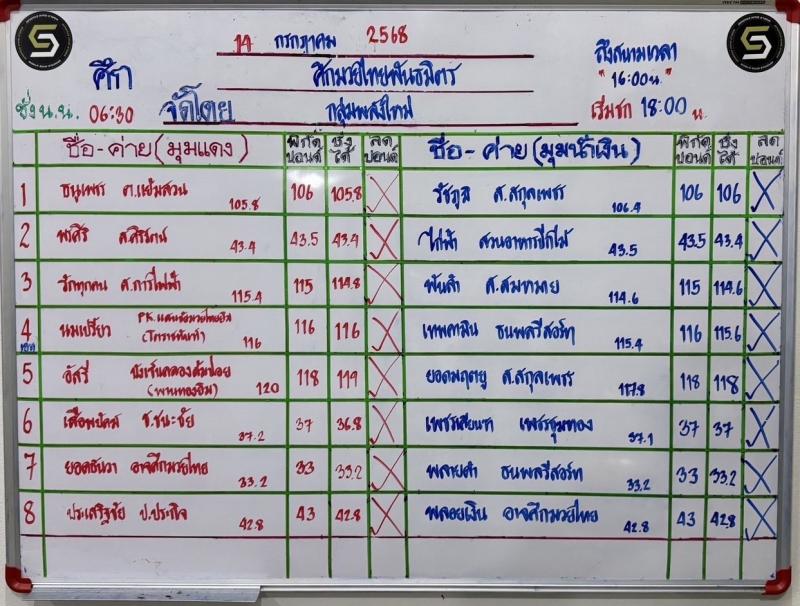 14 กรกฎาคม 2568
ศึก ศึกมวยไทยพันธมิตร ถึงสนามเวลา "16:00น."
ชั่ง น.น. 06:30 จัดโดย กลุ่มพลังใหม่ เริ่มชก 18:00 น.
ชื่อ-ค่าย (มุมแดง) พิกัดปอนด์ ชั่งได้ ลดปอนด์ ชื่อ-ค่าย (มุมน้ำเงิน) พิกัดปอนด์ ชั่งได้ ลดปอนด์
1 ธนูเพชร ต.แย้มสวน 105.8 106 105.8 X รัชภูมิ ส.สกุลเพชร 106.4 106 106 X
2 พรศิริ ส.ศิริรัตน์ 43.4 43.5 43.4 X ไก่ฟ้า สวนอาหารปีกไม้ 43.5 43.5 43.4 X
3 รักทุกคน ศ.การไฟฟ้า 115.4 115 114.8 X พันล้า ส.สมหมาย 114.6 115 114.6 X
4 นมเปรี้ยว 116 116 116 X เทพทามิน ธนพลรีสอร์ท 115.4 116 115.6 X
5 อัสรี 120 118 119 X ยอดมฤตยู ส.สกุลเพชร 117.8 118 118 X
(พานทองยิม)
6 เสือพยัคฆ์ ช.ชนะชัย 37.2 37 36.8 X เพชรเสียนชา เพชรชุมทอง 37.1 37 37 X
7 ยอดธันวา อาจศึกมวยไทย 33.2 33 33.2 X พลายดำ ธนพลรีสอร์ท 33.2 33 33.2 X
8 ประเสริฐชัย ป.ประกิจ 42.8 43 42.8 X พลอยเงิน อาจศึกมวยไทย 42.8 43 42.8 X